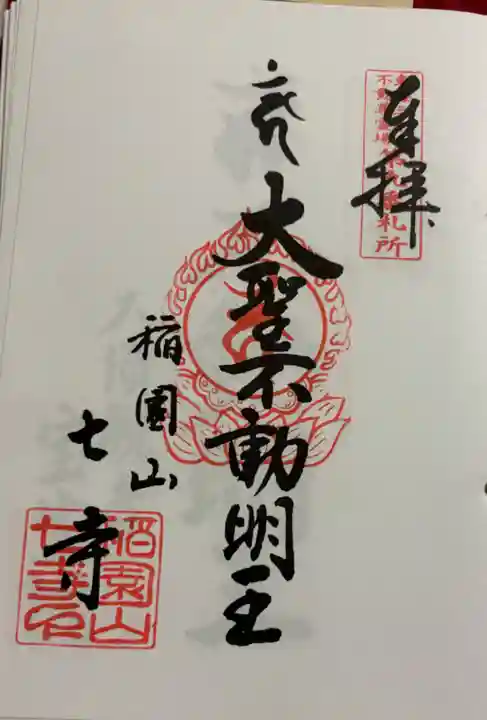 奉拝
大聖不動明王
稲園山
七寺
稲園山
七寺印